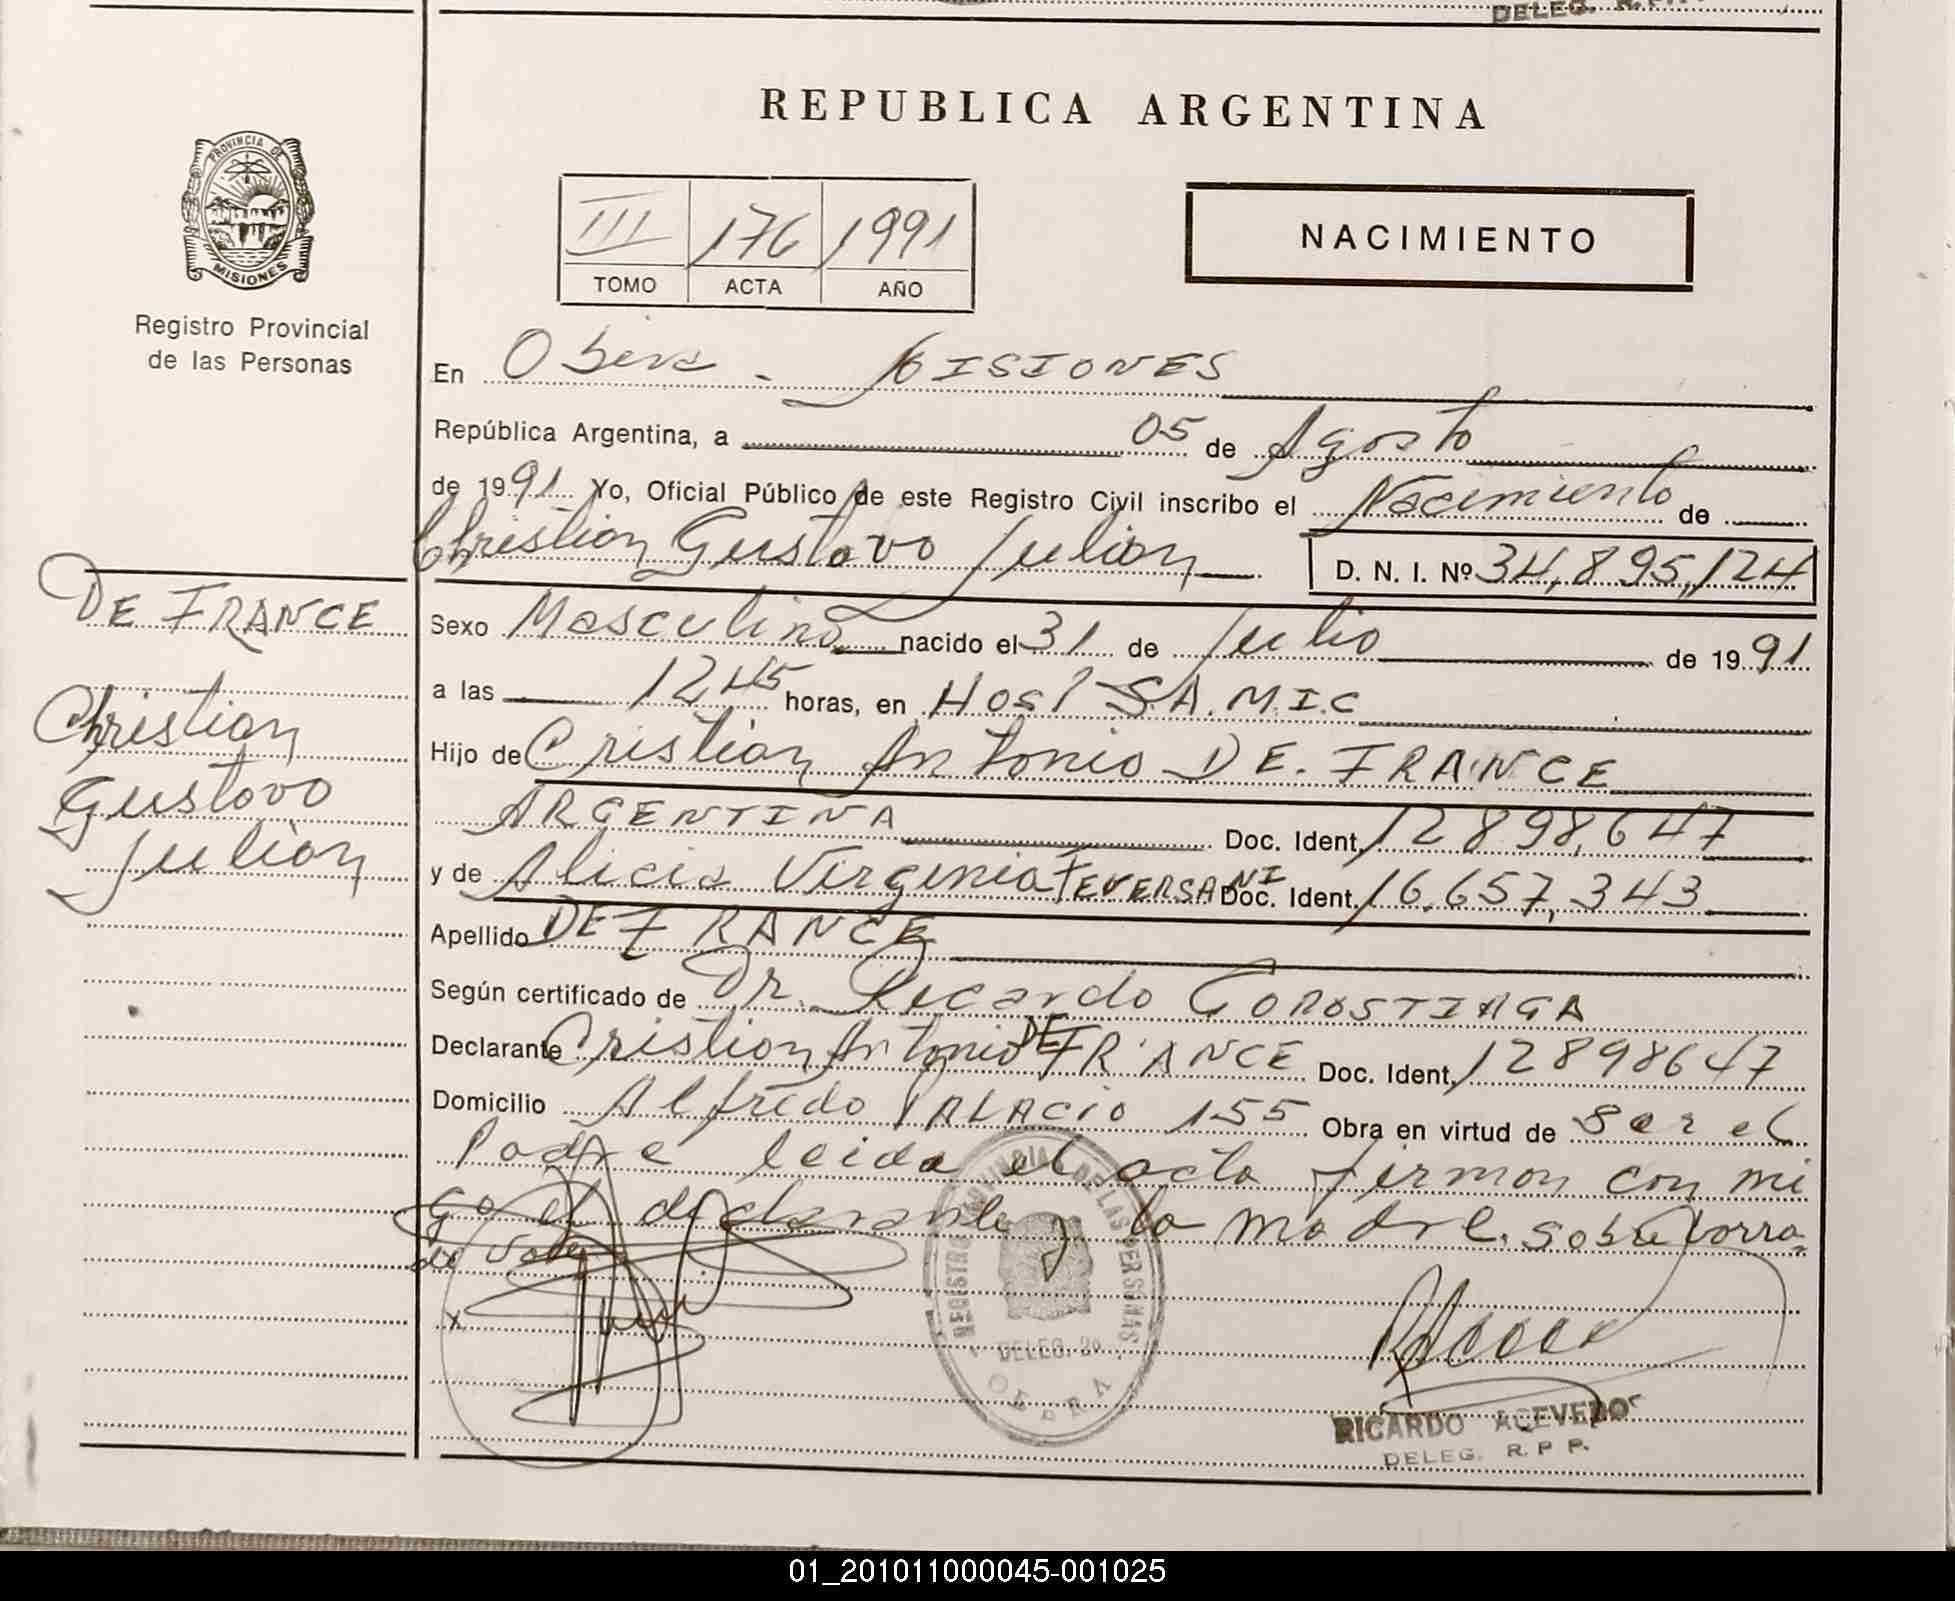 DELEG. R.P.P.
REPUBLICA ARGENTINA
PROVINCIA DE
MISIONES
Registro Provincial
de las Personas
III 176 1991
TOMO ACTA AÑO
NACIMIENTO
En Obera - MISIONES
República Argentina, a 05 de Agosto
de 1991 Yo, Oficial Público de este Registro Civil inscribo el Nacimiento de
Christian Gustavo Julian D. N. I. Nº 34,895,124
DE FRANCE
Christian
Gustavo
Julian
Sexo Masculino nacido el 31 de Julio de 1991
a las 12,45 horas, en HOSP SA.M.I.C
Hijo de Cristian Antonio DE. FRANCE
ARGENTINA Doc. Ident. 12898,647
y de Alicia Virginia FEVERSANI Doc. Ident. 16.657,343
Apellido DE FRANCE
Según certificado de Dr. Ricardo GOROSTIAGA
Declarante Cristian Antonio DE FRANCE Doc. Ident. 12898647
Domicilio Alfredo PALACIO 155 Obra en virtud de ser el
Padre leida el acta firman con mi
go el declarante y la madre. sobre borra
do vale
x
REGISTRO PROVINCIAL DE LAS PERSONAS
DELEG. 2a
OBERA
RICARDO ACEVEDO
DELEG. R. P P.
01_201011000045-001025